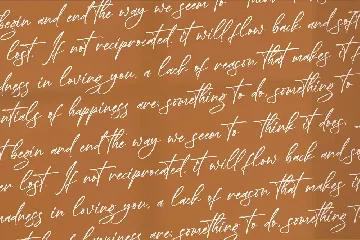 begin and end the way we seem to think
lost. If not reciprocated, it will flow back and soft
madness in loving you, a lack of reason that makes it f
entials of happiness are: something to do, something to
t begin and end the way we seem to think it does.
er lost. If not reciprocated, it will flow back and so
madness in loving you, a lack of reason that makes it
sentials of happiness are: something to do, something to